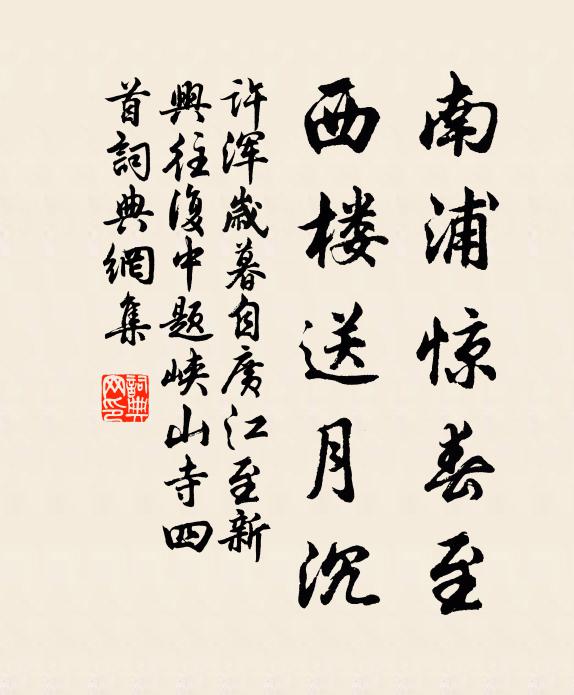 南浦惊春至
西楼送月沉
许浑歲暮自广江至新
興往復中题峡山寺四
首詞典網集
詞典
网印